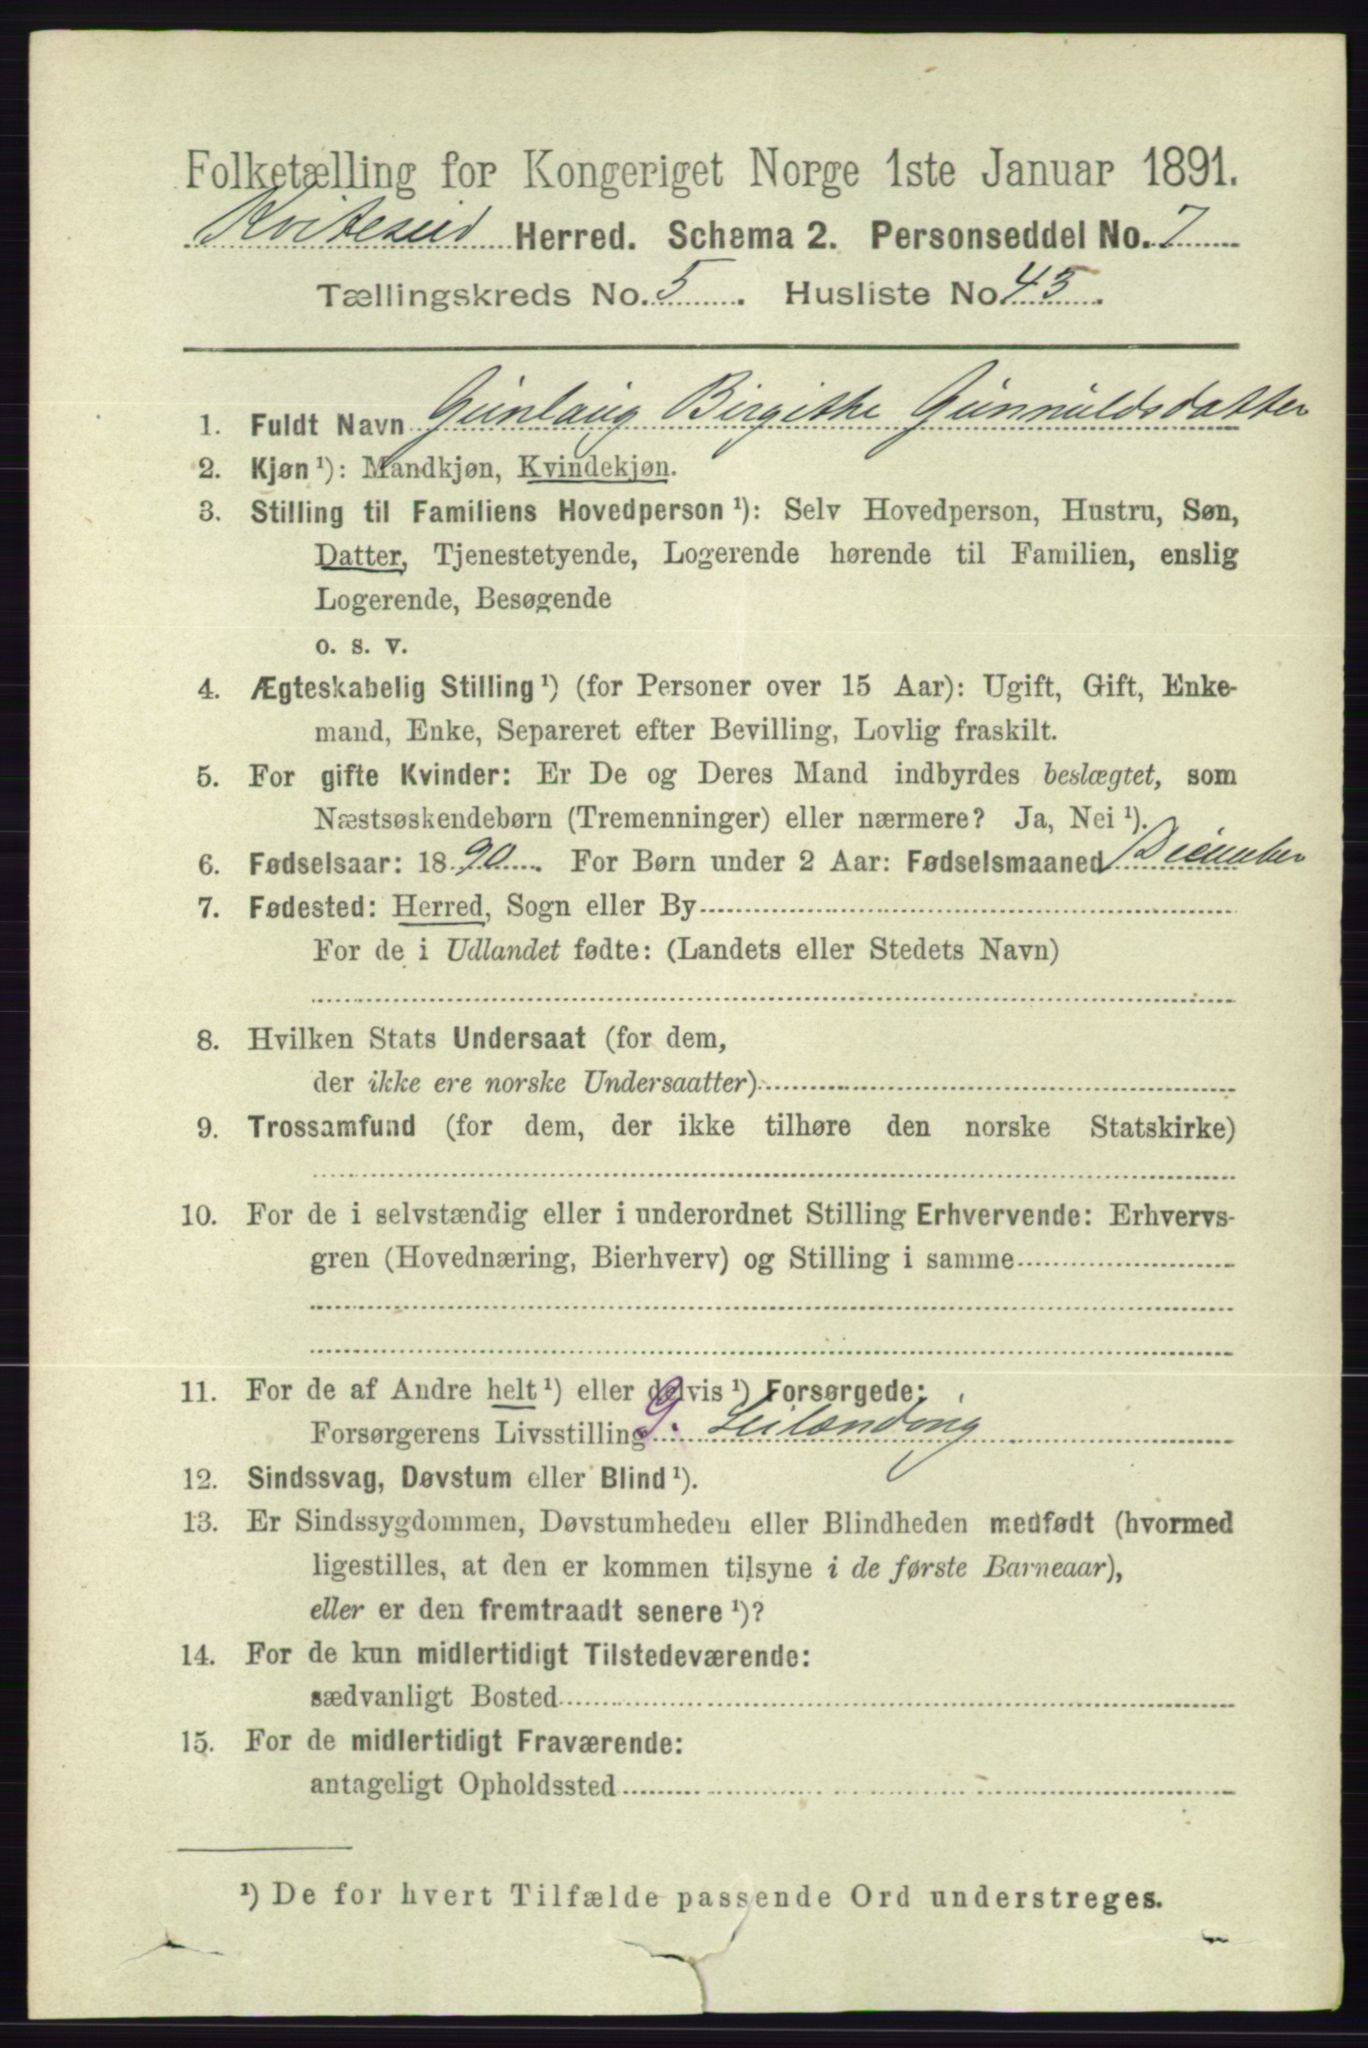 Folketælling for Kongeriget Norge 1ste Januar 1891.
Kviteseid Herred. Schema 2. Personseddel No. 7
Tællingskreds No. 5. Husliste No. 43.
1. Fuldt Navn Gunlaug Birgithe Gunnuldsdatter
2. Kjøn ¹): Mandkjøn, Kvindekjøn.
3. Stilling til Familiens Hovedperson ¹): Selv Hovedperson, Hustru, Søn,
Datter, Tjenestetyende, Logerende hørende til Familien, enslig
Logerende, Besøgende
o. s. v.
4. Ægteskabelig Stilling ¹) (for Personer over 15 Aar): Ugift, Gift, Enke-
mand, Enke, Separeret efter Bevilling, Lovlig fraskilt.
5. For gifte Kvinder: Er De og Deres Mand indbyrdes beslægtet, som
Næstsøskendebørn (Tremenninger) eller nærmere? Ja, Nei ¹).
6. Fødselsaar: 1890. For Børn under 2 Aar: Fødselsmaaned December
7. Fødested: Herred, Sogn eller By
For de i Udlandet fødte: (Landets eller Stedets Navn)
8. Hvilken Stats Undersaat (for dem,
der ikke ere norske Undersaatter)
9. Trossamfund (for dem, der ikke tilhøre den norske Statskirke)
10. For de i selvstændig eller i underordnet Stilling Erhvervende: Erhvervs-
gren (Hovednæring, Bierhverv) og Stilling i samme
11. For de af Andre helt ¹) eller delvis ¹) Forsørgede:
Forsørgerens Livsstilling G. Leilænding
12. Sindssvag, Døvstum eller Blind ¹).
13. Er Sindssygdommen, Døvstumheden eller Blindheden medfødt (hvormed
ligestilles, at den er kommen tilsyne i de første Barneaar),
eller er den fremtraadt senere ¹)?
14. For de kun midlertidigt Tilstedeværende:
sædvanligt Bosted
15. For de midlertidigt Fraværende:
antageligt Opholdssted
¹) De for hvert Tilfælde passende Ord understreges.